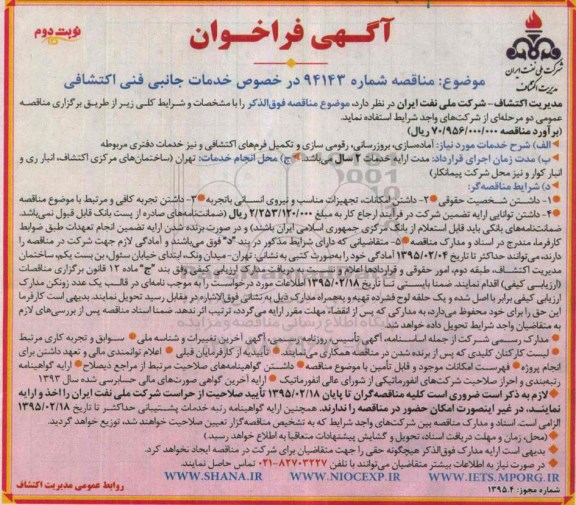 نوبت دوم
آگهی فراخوان
شرکت ملی نفت ایران
مدیریت اکتشاف
موضوع: مناقصه شماره ۹۴۱۴۳ در خصوص خدمات جانبی فنی اکتشافی
مدیریت اکتشاف - شرکت ملی نفت ایران در نظر دارد، موضوع مناقصه فوق‌الذکر را با مشخصات و شرایط کلی زیر از طریق برگزاری مناقصه
عمومی دو مرحله‌ای از شرکت‌های واجد شرایط استفاده نماید.
(برآورد مناقصه ۷۰/۹۵۶/۰۰۰/۰۰۰ ریال)
الف) شرح خدمات مورد نیاز: آماده‌سازی، بروزرسانی، رقومی سازی و تکمیل فرم‌های اکتشافی و نیز خدمات دفتری مربوطه
ب) مدت زمان اجرای قرارداد: مدت ارایه خدمت ۲ سال می‌باشد. ج) محل انجام خدمات: تهران (ساختمان‌های مرکزی اکتشاف، انبار ری و
انبار کولر و نیز محل شرکت پیمانکار)
د) شرایط مناقصه‌گر:
۱- داشتن شخصیت حقوقی ۲- داشتن امکانات، تجهیزات مناسب و نیروی انسانی باتجربه ۳- داشتن تجربه کافی و مرتبط با موضوع مناقصه
۴- داشتن توانایی ارایه تضمین شرکت در فرآیند ارجاع کار به مبلغ ۲/۲۵۳/۱۲۰/۰۰۰ ریال (ضمانت‌نامه‌های صادره از پست بانک قابل قبول نمی‌باشد.
ضمانت‌نامه‌های بانکی باید قابل استعلام از بانک مرکزی جمهوری اسلامی ایران باشند) و در صورت برنده شدن ارایه تضمین انجام تعهدات طبق ضوابط
کارفرما، مندرج در اسناد و مدارک مناقصه ۵- متقاضیانی که دارای شرایط مذکور در بند "د" فوق می‌باشند و آمادگی لازم جهت شرکت در مناقصه را
دارند، می‌توانند حداکثر تا تاریخ ۱۳۹۵/۰۲/۰۴ آمادگی خود را به‌صورت کتبی به نشانی تهران- میدان ونک، ابتدای خیابان سئول، بن بست یکم، ساختمان
مدیریت اکتشاف، طبقه دوم، امور حقوقی و قراردادها اعلام
(ارزیابی کیفی) اقدام نمایند. ضمنا بایستی تا تاریخ ۱۳۹۵/۰۲/۱۸ اطلاعات مورد درخواست را به موجب نمونه‌ای در قالب یک عدد زونکن مدارک
ارزیابی کیفی برابر با اصل شده و یک حلقه لوح فشرده تهیه و به‌همراه مدارک ذیل به نشانی فوق‌الاشاره در مقابل رسید تحویل نمایند. بدیهی است کارفرما
این حق را برای خود محفوظ می‌دارد، به مدارکی که پس از انقضاء مهلت مقرر ارایه می‌گردد، ترتیب اثر ندهد. ضمنا اسناد مناقصه پس از بررسی‌های لازم
به متقاضیان واجد شرایط تحویل داده خواهد شد.
مدارک رسمی شرکت از جمله اساسنامه، آگهی تأسیس روزنامه رسمی، آگهی آخرین تغییرات و شناسه ملی سوابق و تجربه کاری مرتبط
لیست کارکنان کلیدی که پس از برنده شدن در مناقصه همکاری می‌نمایند تأییدیه از کارفرمایان قبلی اعلام توانمندی مالی و تعهد داشتن برای
انجام پروژه فهرست امکانات موجود و قابل تأمین با موضوع مناقصه داشتن گواهینامه‌های صلاحیت مرتبط از مراجع ذیصلاح ارایه گواهینامه
رتبه‌بندی و احراز صلاحیت شرکت‌های انفورماتیکی از شورای عالی انفورماتیک ارایه آخرین گواهی صورت‌های مالی حسابرسی شده سال ۱۳۹۳
لازم به ذکر است ضروری است کلیه مناقصه‌گران تا پایان ۱۳۹۵/۰۲/۱۸ تأیید صلاحیت از حراست شرکت ملی نفت ایران را اخذ و ارایه
نمایند، در غیر اینصورت امکان حضور در مناقصه را ندارند. همچنین ارایه گواهینامه رتبه خدمات پشتیبانی حداکثر تا تاریخ ۱۳۹۵/۰۲/۱۸
الزامی است. اسناد و مدارک مناقصه بین شرکت‌های واجد شرایط که به تشخیص مناقصه‌گزار تعیین صلاحیت خواهند شد، توزیع خواهد گردید.
(محل، زمان و مهلت دریافت اسناد، تحویل و گشایش پیشنهادات متعاقبا به اطلاع خواهد رسید.)
بدیهی است ارایه مدارک فوق‌الذکر هیچگونه حقی را جهت متقاضیان برای شرکت در مناقصه ایجاد نخواهد کرد.
در صورت نیاز به اطلاعات بیشتر متقاضیان می‌توانند با تلفن ۸۲۷۰۳۲۲۷-۰۲۱ تماس حاصل نمایند.
WWW.SHANA.IR WWW.NIOCEXP.IR WWW.IETS.MPORG.IR
شماره مجوز: ۱۳۹۵.۴
روابط عمومی مدیریت اکتشاف